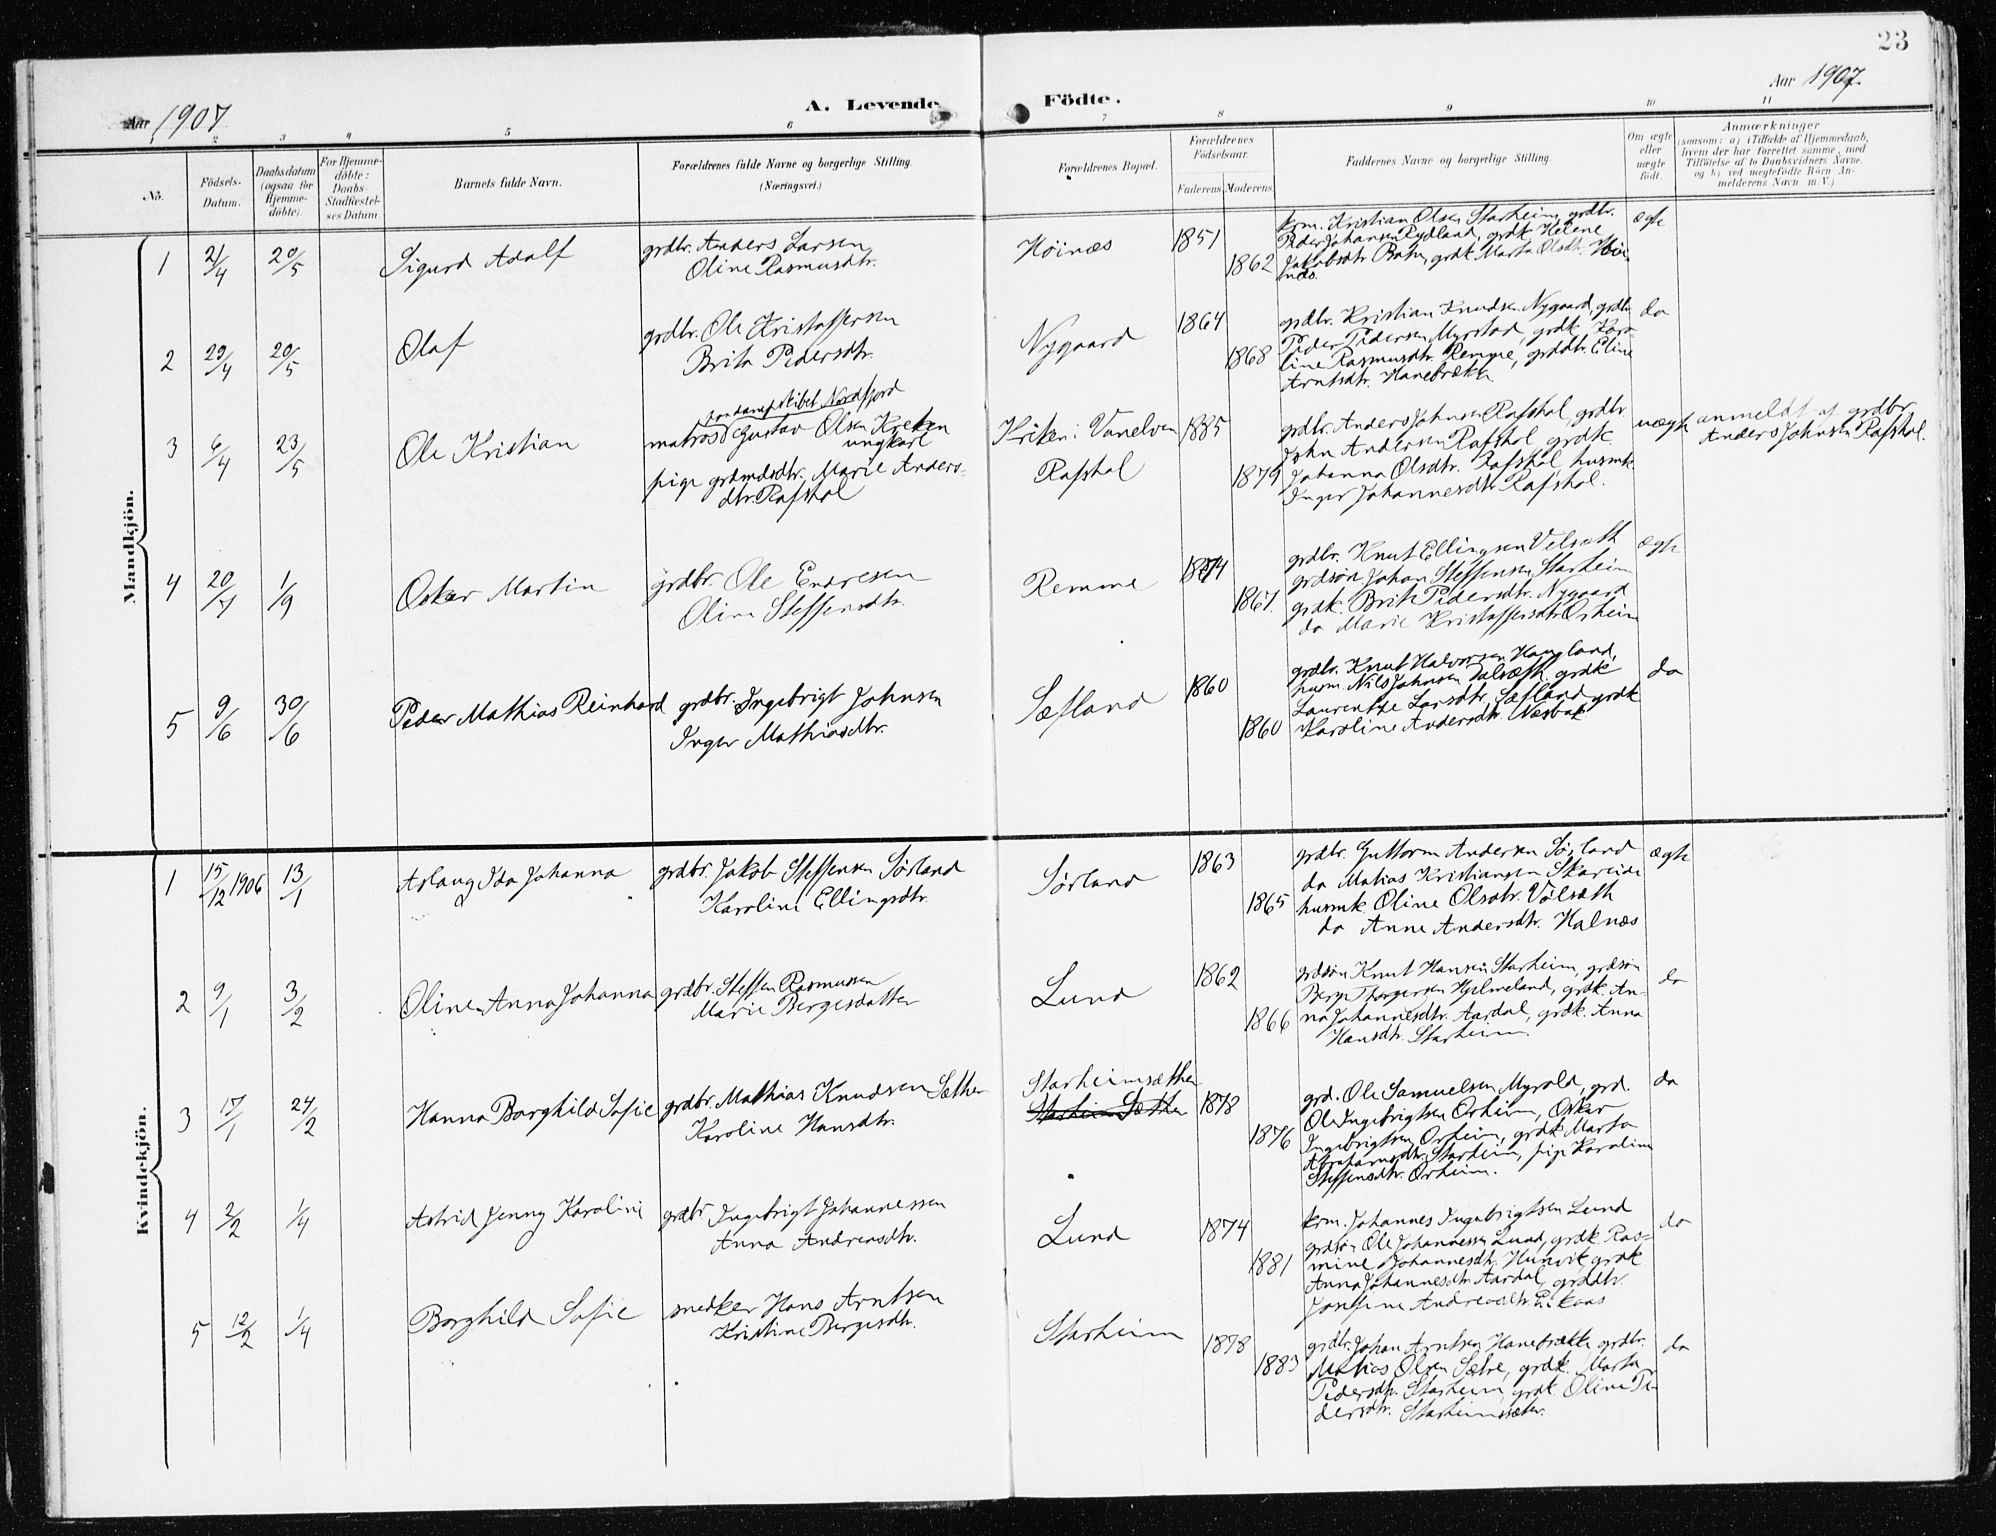 23
Aar 1907. A. Levende Födte. Aar 1907.
1 2 3 4 5 6 7 8 9 10 11
No.
Födsels-Datum.
Daabsdatum (ogsaa for Hjemmedöbte).
For Hjemmedöbte: Daabs-Stadfæstelses Datum.
Barnets fulde Navn.
Forældrenes fulde Navne og borgerlige Stilling.
(Næringsvei.)
Forældrenes Bopæl.
Forældrenes Födselsaar.
Faderens. Moderens.
Faddernes Navne og borgerlige Stilling.
Om ægte eller uægte födt.
Anmærkninger
(saasom: a) i Tilfælde af Hjemmedaab,
hvem der har forrettet samme, med
Tilföielse af to Daabsvidners Navne.
og b) ved uægtefödte Börn An-
melderens Navn m. V.)
Mandkjön.
1 21/4 20/5 Sigurd Adolf
grdbr. Anders Larsen
Oline Rasmusdtr.
Höinæs 1851 1862
krm. Kristian Olsen Starheim, grdbr.
Peder Johansen Rydland, grdk Helene
Jakobsdtr. , grdk Marta Olsdtr. Höi-
næs.
ægte
2 29/4 20/5 Olaf
grdbr. Ole Kristoffersen
Brita Pedersdtr.
Nygaard 1864 1868
grdbr. Kristian Knudsen Nygaard, grdbr.
Peder Pedersen Myrstad, grdk. Karo-
line Rasmusdtr. Remme, grddtr. Eline
Arntsdtr. Hanebrekke
do
3 6/4 23/5 Ole Kristian
paa dampskibet Nordfjord
matros Gustav Olsen Kreken
ungkarl
pige grdmdsdtr. Marie Anders-
dtr. Rafshol
Kreken i Vanelven
Rafshol
1885 1879
grdbr. Anders Johnsen Rafshol, grdbr
John Andersen Rafshol, grdk.
Johanna Olsdtr. Rafshol, husmk
Inger Johannesdtr. Rafshol.
uægte anmeldt af grdbr.
Anders Johnsen Rafshol.
4 20/7 1/9 Oskar Martin
grdbr. Ole Endresen
Oline Steffensdtr.
Remme 1874 1867.
grdbr. Knut Ellingsen Velsæth
grdsön Johan Steffensen Starheim
grdk. Brite Pedersdtr. Nygaard
do Marie Kristoffersdtr. Orheim
ægte
5 9/6 30/6 Peder Mathias Reinhard
grdbr. Ingebrigt Johnsen
Inger Mathiasdtr.
Sæfland 1860 1860
grdbr. Knut Halvorsen Haugland,
husm. Nils Johnsen Valsæth, grdk
Laurentze Larsdtr. Sæfland grdk
Karoline Andersdtr. Næsbak
do
Kvindekjön.
1 15/12 1906 13/1 Aslaug Ida Johanna
grdbr. Jakob Steffensen Sørland
Karoline Ellingsdtr.
Sørland 1863 1865
grdbr. Guttorm Andersen Sørland
do Matias Kristiansen Skareide
husmk. Oline Olsdtr. Vølsæth
do Anne Andersdtr. Halnæs
ægte
2 9/1 3/2 Oline Anna Johanna
grdbr. Steffen Rasmussen
Marie Bergesdatter
Lund 1862 1866
grdsön Knut Hansen Starheim, grdsön
Berge Torgersen Hjelmeland, grdk. An-
na Johannesdtr. Aardal, grdk. Anna
Hansdtr. Starheim.
do
3 17/1 24/2 Hanna Borghild Sofie
grdbr. Mathias Knudsen Sæther
Karoline Hansdtr.
Starheimsæther
Starheim Sæther
1878 1876
grd. Ole Samuelsen Myrold, grd.
Ole Ingebrigtsen Orheim, Oskar
Ingebrigtsen Orheim, grdk Marta
Abrahamsdtr. Starheim, pige Karoline
Steffensdtr. Orheim.
do
4 2/2 1/4 Astrid Jenny Karoline
grdbr Ingebrigt Johannessen
Anna Andreasdtr.
Lund 1874 1881
krm. Johannes Ingebrigtsen Lund
grdsön Ole Johannessen Lund, grdk. Ras-
mine Johannesdtr. Hunvik, grdk
Anna Johannesdtr. Aardal, grddtr.
Josefine Andreasdtr. Eikaas
do
5 12/2 1/4 Borghild Sofie
snedker Hans Arntsen
Kristine Bergesdtr.
Starheim 1878 1883
grdbr. Johan Arntsen Hanebrekke grdbr.
Matias Olsen Sætre, grdk. Marta
Pedersdtr. Starheim, grdk. Oline Pe-
dersdtr. Starheimsæter.
do